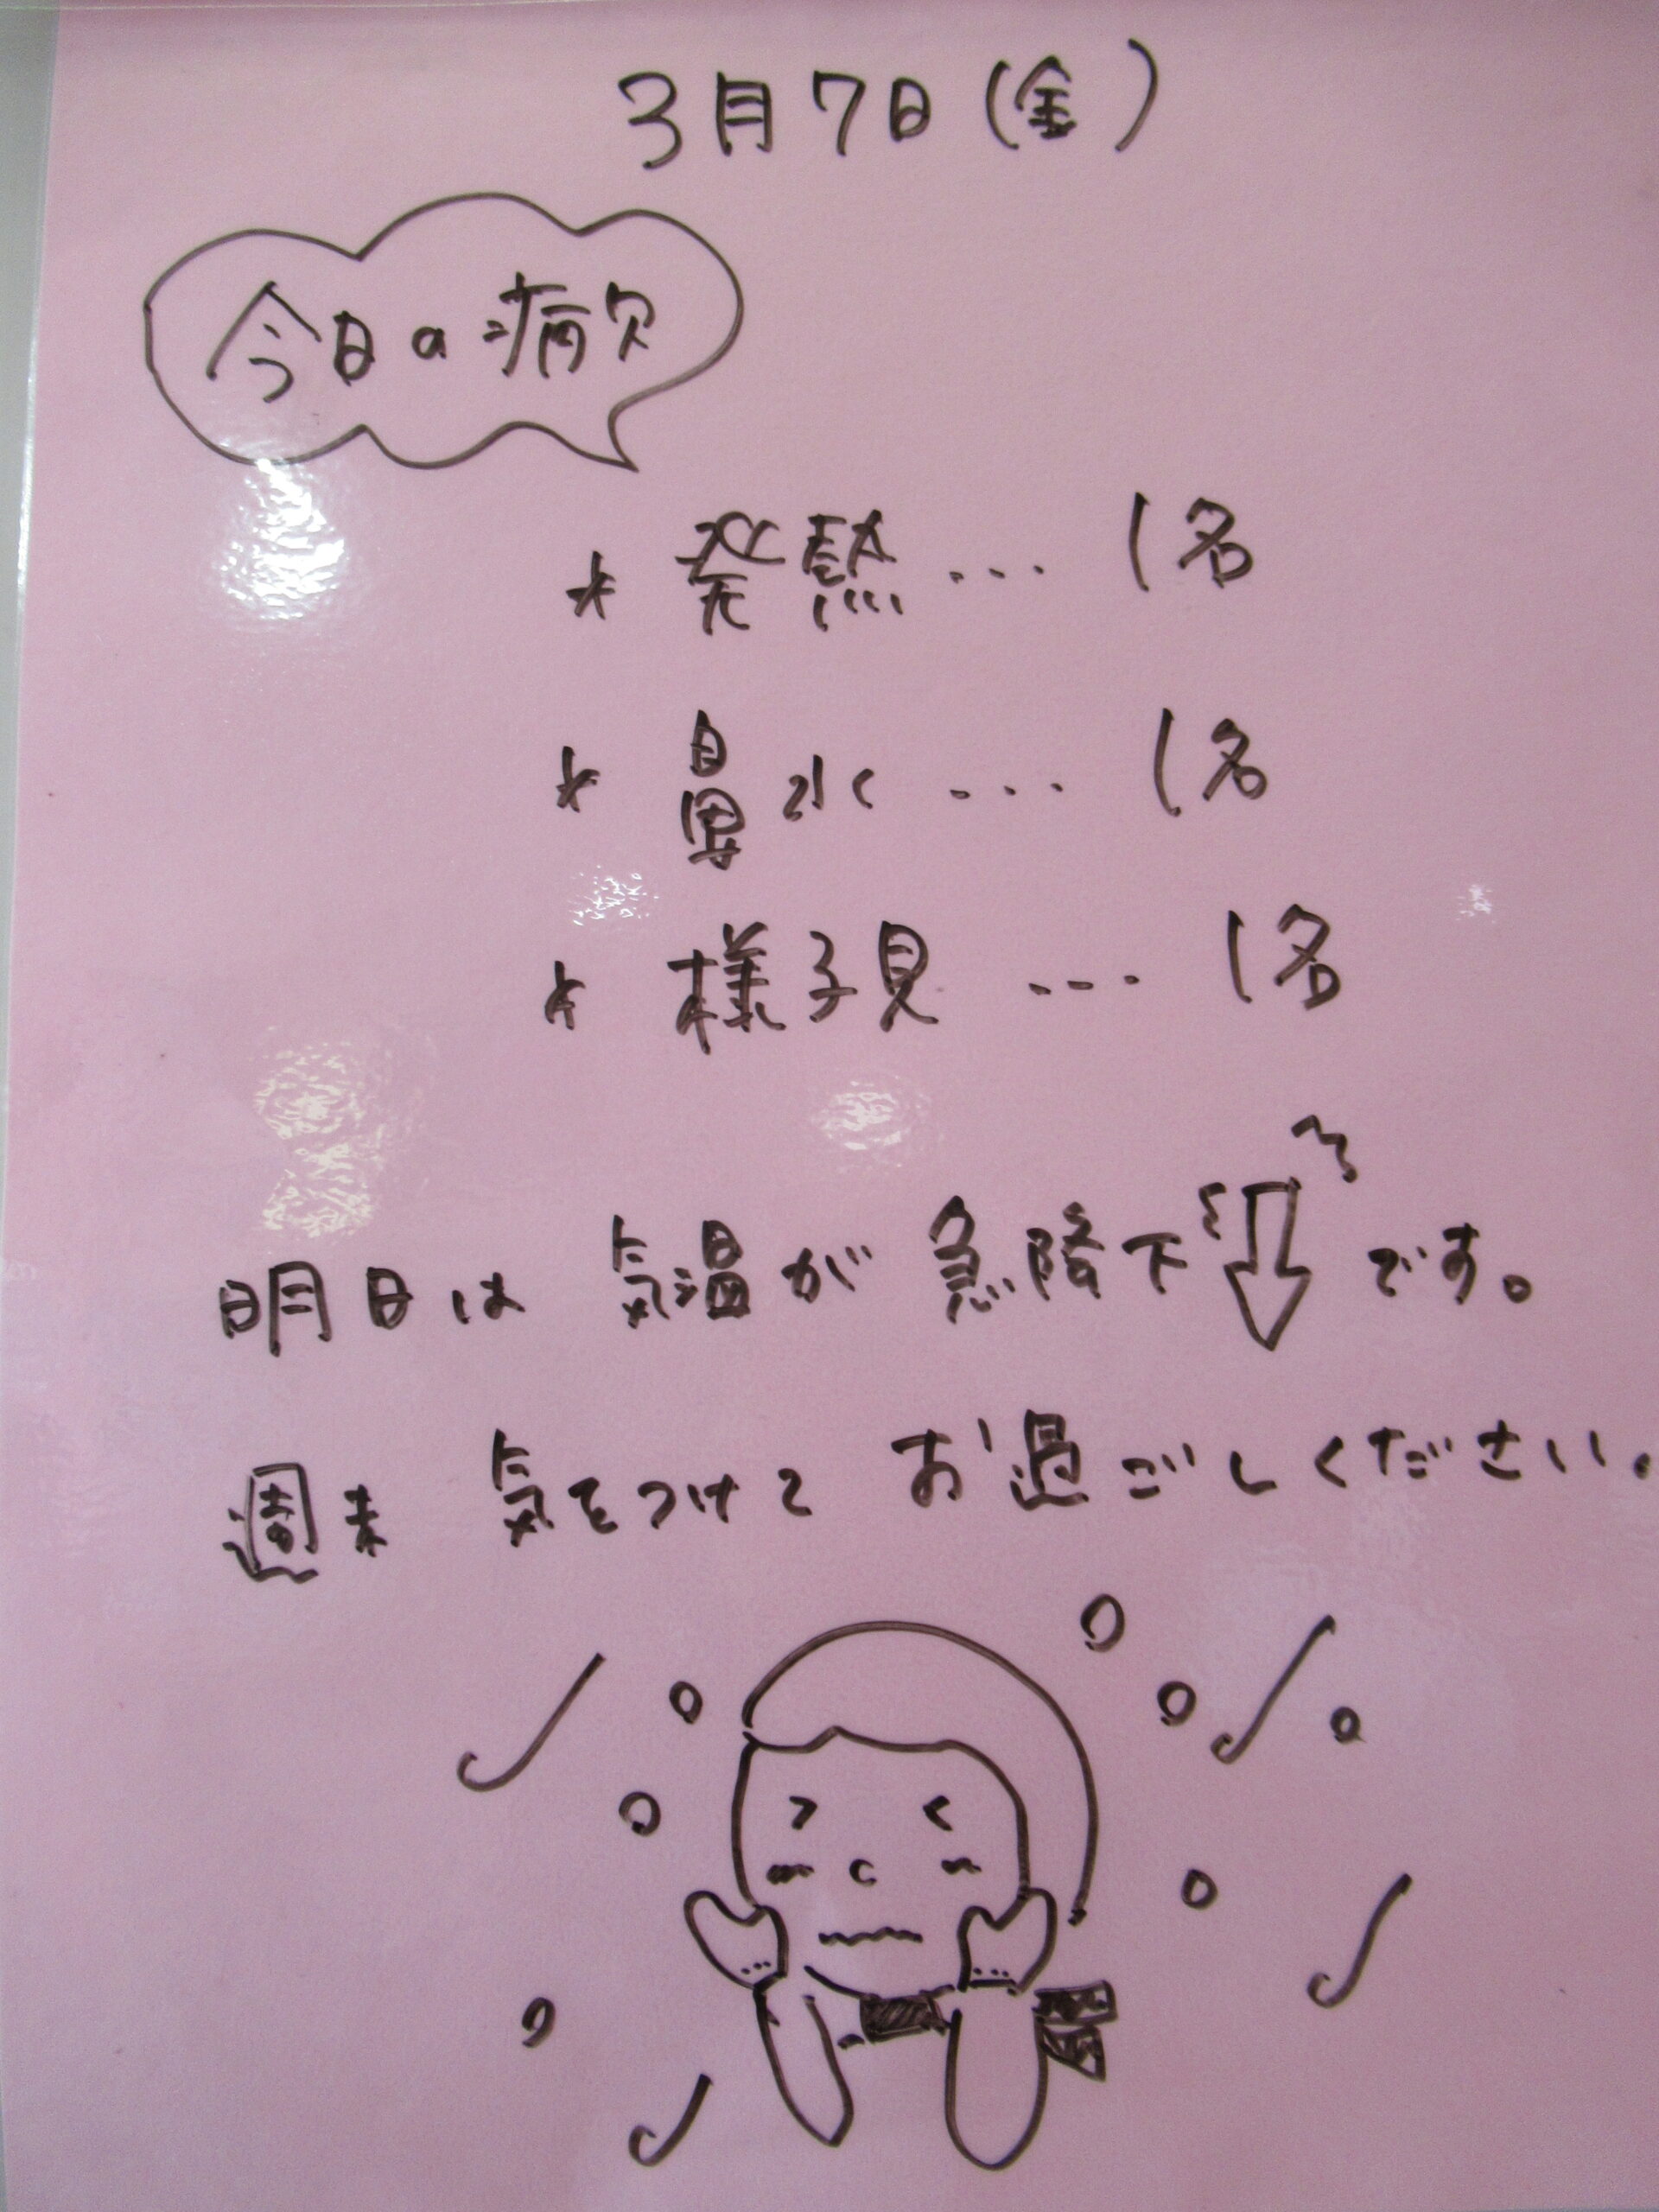 3月7日(金)
今日の病欠
* 発熱… 1名
* 鼻水… 1名
* 様子見… 1名
明日は 気温が 急降下⇩です。
週末 気をつけて お過ごしください。